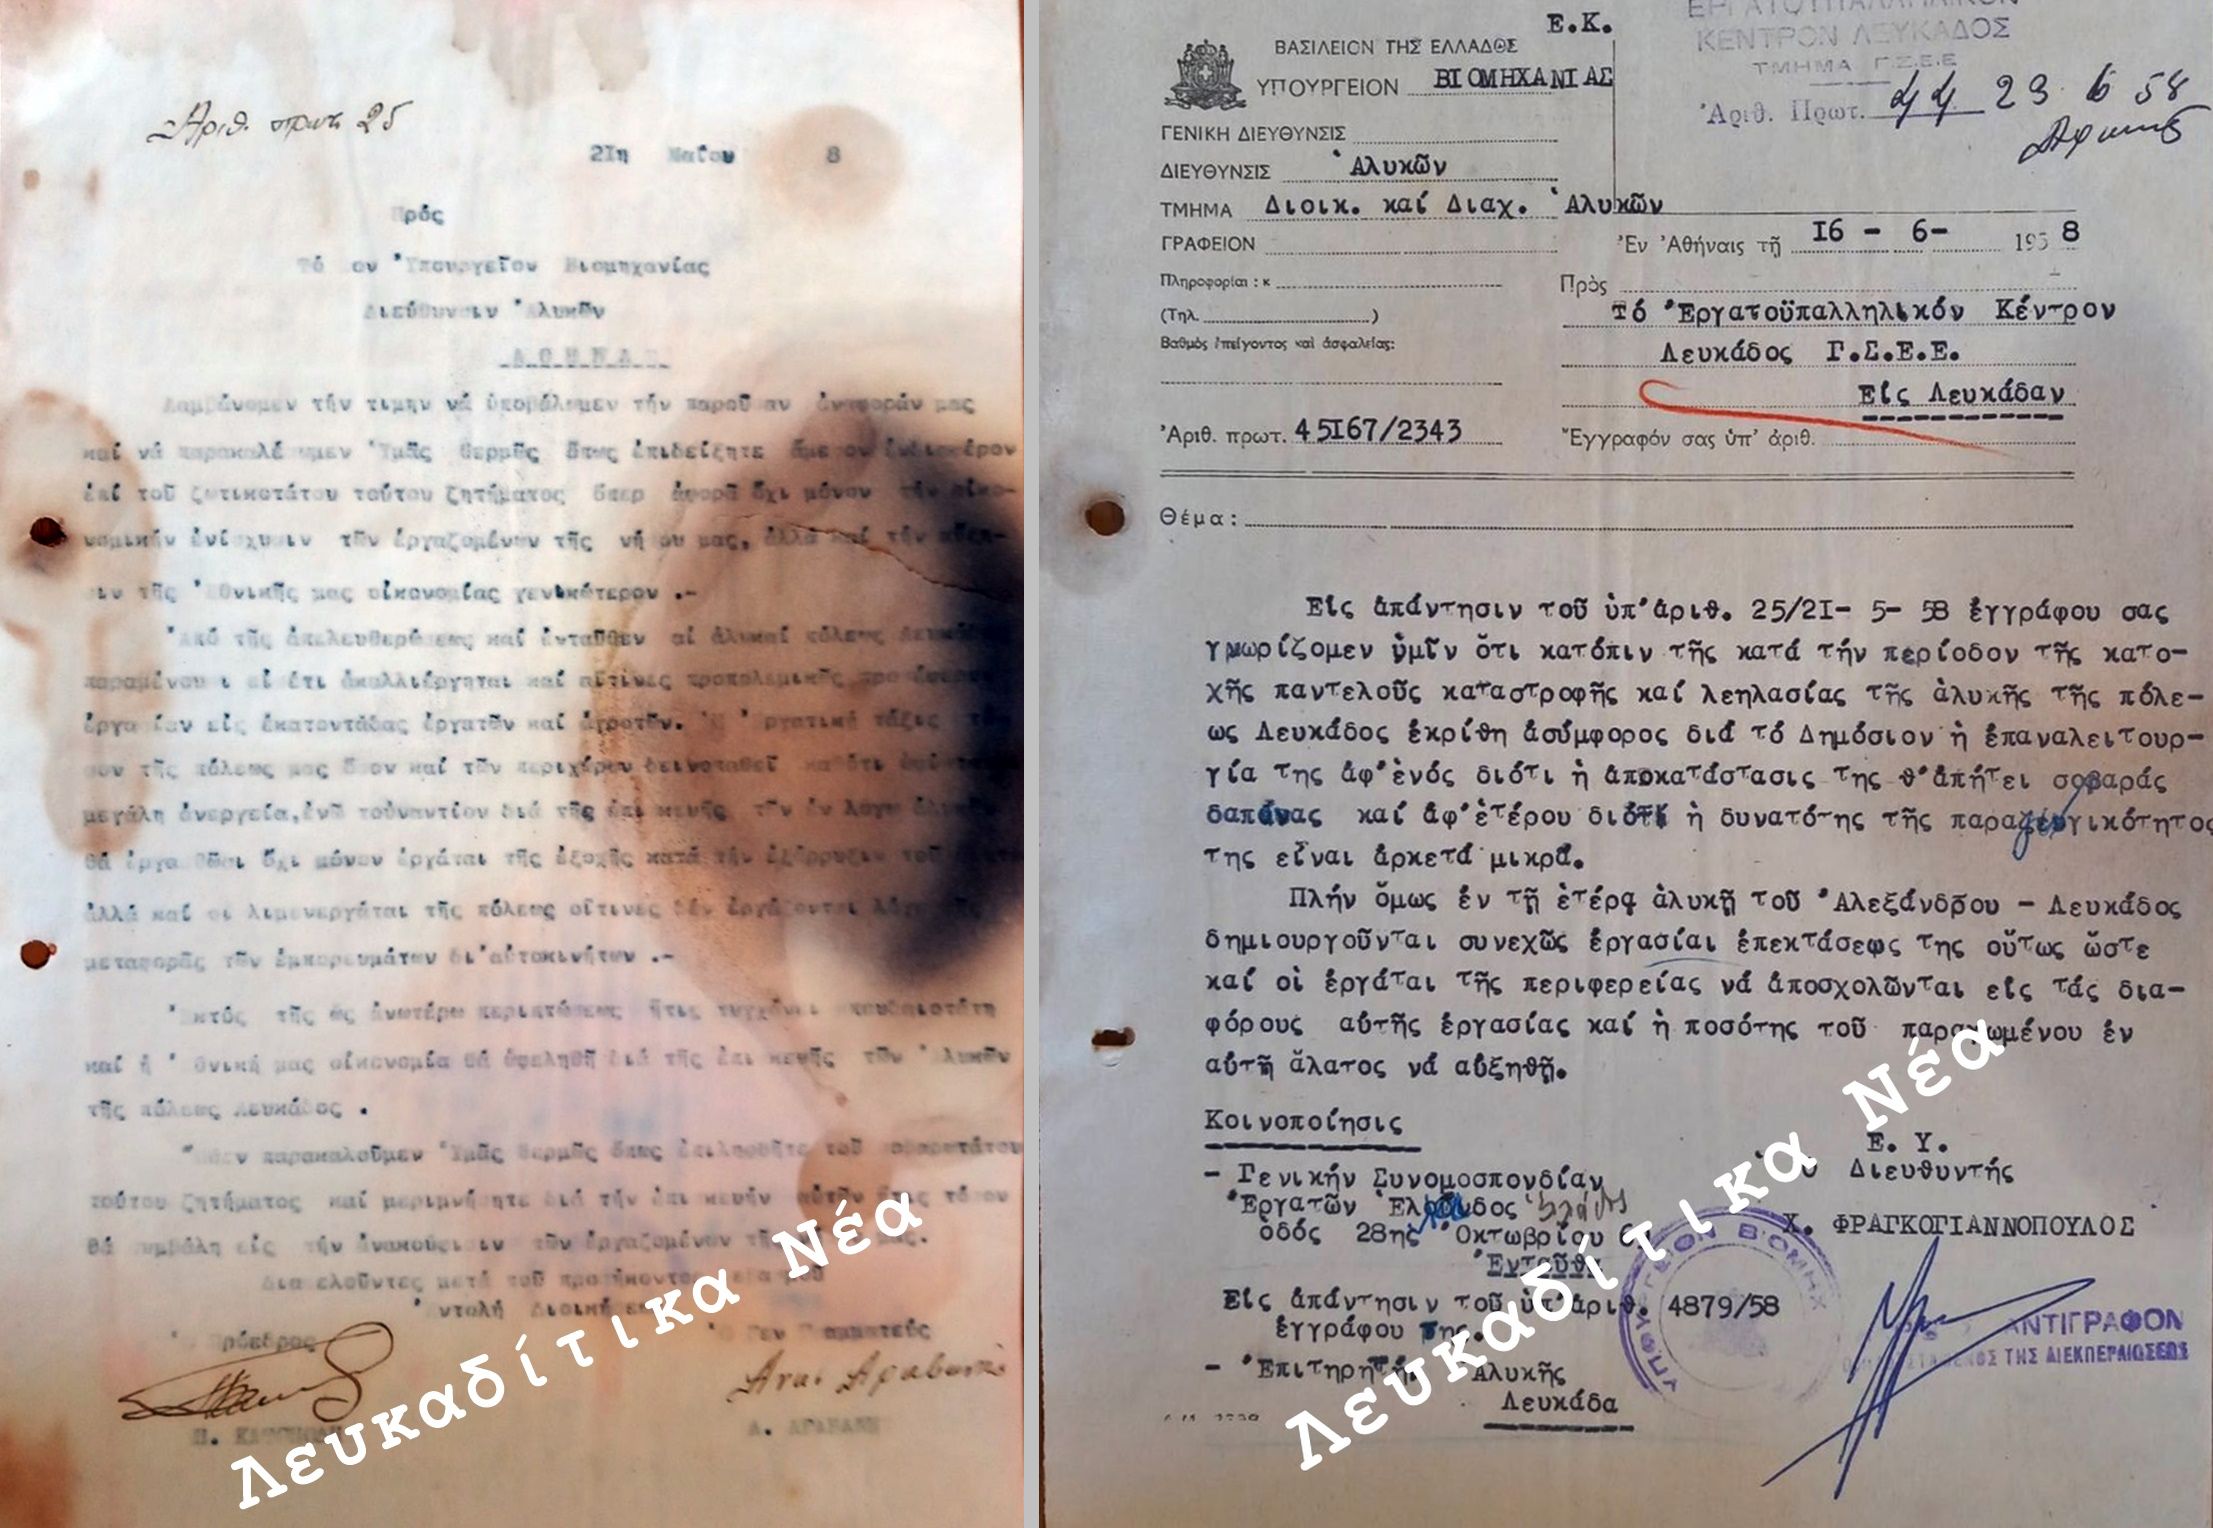 Ἀριθ. πρωτ 25
21η Μαΐου 8
Πρός
Τό Ὑπουργεῖον Βιομηχανίας
Διεύθυνσιν Ἁλυκῶν
ΑΘΗΝΑΣ
Λαμβάνομεν τήν τιμήν νά ὑποβάλωμεν τήν παροῦσαν ἀναφοράν μας
καί νά παρακαλέσωμεν Ὑμᾶς θερμῶς ὅπως ἐπιδείξητε ἄμεσον ἐνδιαφέρον
ἐπί τοῦ ζωτικοτάτου τούτου ζητήματος ὅπερ ἀφορᾶ ὄχι μόνον τήν οἰκο-
νομικήν ἐνίσχυσιν τῶν ἐργαζομένων τῆς νήσου μας, ἀλλά καί τήν αὔξη-
σιν τῆς Ἐθνικῆς μας οἰκονομίας γενικώτερον .-
Ἀπό τῆς ἀπελευθερώσεως καί ἐνταῦθεν αἱ ἁλυκαί πόλεως
παραμένουσι εἰ ἔτι ἀκαλλιέργηται καί αἵτινες προπολεμικῶς
ἐργασίαν εἰς ἑκατοντάδας ἐργατῶν καί ἀγροτῶν. Ἡ Ἐργατική τάξις
τῆς πόλεως μας ὅσον καί τῶν περιχώρων δεινοπαθεῖ καθότι
μεγάλη ἀνεργεία, ἐνῶ τοὐναντίον διά τῆς ἐπισκευῆς τῶν ἐν λόγω
θά ἐργασθῶσι ὄχι μόνον ἐργάται τῆς ἐξοχῆς κατά τήν ἐξόρρυξιν τοῦ
ἀλλά καί οἱ λιμενεργάται τῆς πόλεως οἵτινες δέν ἐργάζονται λόγω τῆς
μεταφορᾶς τῶν ἐμπορευμάτων δι'αὐτοκινήτων .-
Ἐκτός τῆς ὡς ἀνωτέρω περιπτώσεως ἥτις τυγχάνει σπουδαιοτάτη
καί ἡ Ἐθνική μας οἰκονομία θά ὠφεληθῆ διά τῆς ἐπισκευῆς τῶν Ἁλυκῶν
τῆς πόλεως Λευκάδος .
Ὅθεν παρακαλοῦμεν Ὑμᾶς θερμῶς ὅπως ἐπιληφθῆτε τοῦ σοβαρωτάτου
τούτου ζητήματος καί μεριμνήσητε διά τήν ἐπισκευήν αὐτῶν ἥτις τόσον
θά συμβάλη εἰς τήν ἀνακούφισιν τῶν ἐργαζομένων τῆς
Διατελοῦντες μετά τοῦ προσήκοντος σεβασμοῦ
Ἐντολή Διοικήσεως
Ὁ Πρόεδρος Ὁ Γεν Γραμματεύς
Α. ΑΡΑΒΑΝΗΣ
Λευκαδίτικα Νέα
Ε.Κ.
ΒΑΣΙΛΕΙΟΝ ΤΗΣ ΕΛΛΑΔΟΣ
ΥΠΟΥΡΓΕΙΟΝ ΒΙΟΜΗΧΑΝΙΑΣ
ΓΕΝΙΚΗ ΔΙΕΥΘΥΝΣΙΣ
ΔΙΕΥΘΥΝΣΙΣ Ἁλυκῶν
ΤΜΗΜΑ Διοικ. καί Διαχ. Ἁλυκῶν
ΓΡΑΦΕΙΟΝ
Πληροφορίαι : κ
(Τηλ. )
Βαθμὸς ἐπείγοντος καὶ ἀσφαλείας:
Ἀριθ. πρωτ. 45I67/2343
ΕΡΓΑΤΟΫΠΑΛΛΗΛΙΚΟΝ
ΚΕΝΤΡΟΝ ΛΕΥΚΑΔΟΣ
ΤΜΗΜΑ Γ.Σ.Ε.Ε
Ἀριθ. Πρωτ. 44 23 6 58
Ἐν Ἀθήναις τῇ I6 - 6- 1958
Πρὸς
Τό Ἐργατοϋπαλληλικόν Κέντρον
Λευκάδος Γ.Σ.Ε.Ε.
Εἰς Λευκάδαν
Ἔγγραφόν σας ὑπ' ἀριθ.
Θέμα :
Εἰς ἀπάντησιν τοῦ ὑπ'ἀριθ. 25/2I- 5- 58 ἐγγράφου σας
γνωρίζομεν ὑμῖν ὅτι κατόπιν τῆς κατά τήν περίοδον τῆς κατο-
χῆς παντελοῦς καταστροφῆς καί λεηλασίας τῆς ἁλυκῆς τῆς πόλε-
ως Λευκάδος ἐκρίθη ἀσύμφορος διά τό Δημόσιον ἡ ἐπαναλειτουρ-
γία της ἀφ'ἑνός διότι ἡ ἀποκατάστασις της θ'ἀπῄτει σοβαράς
δαπάνας καί ἀφ'ἑτέρου διότι ἡ δυνατότης τῆς παραγωγικότητος
της εἶναι ἀρκετά μικρά.
Πλήν ὅμως ἐν τῇ ἑτέρᾳ ἁλυκῇ τοῦ Ἀλεξάνδρου - Λευκάδος
δημιουργοῦνται συνεχῶς ἐργασίαι ἐπεκτάσεως της οὕτως ὥστε
καί οἱ ἐργάται τῆς περιφερείας νά ἀποσχολῶνται εἰς τάς δια-
φόρους αὐτῆς ἐργασίας καί ἡ ποσότης τοῦ παραγωμένου ἐν
αὐτῇ ἅλατος νά αὐξηθῇ.
Κοινοποίησις
- Γενικήν Συνομοσπονδίαν
Ἐργατῶν Ἑλλάδος
ὁδός 28ης Ὀκτωβρίου
Ἐνταῦθα
Εἰς ἀπάντησιν τοῦ ὑπ'ἀριθ. 4879/58
ἐγγράφου της.
- Ἐπιτηρητ. Ἁλυκῆς
Λευκάδα
Ε. Υ.
Ὁ Διευθυντής
Χ. ΦΡΑΓΚΟΓΙΑΝΝΟΠΟΥΛΟΣ
ΑΝΤΙΓΡΑΦΟΝ
ΤΗΣ ΔΙΕΚΠΕΡΑΙΩΣΕΩΣ
ΥΠΟΥΡΓΕΙΟΝ ΒΙΟΜΗΧ
Λευκαδίτικα Νέα